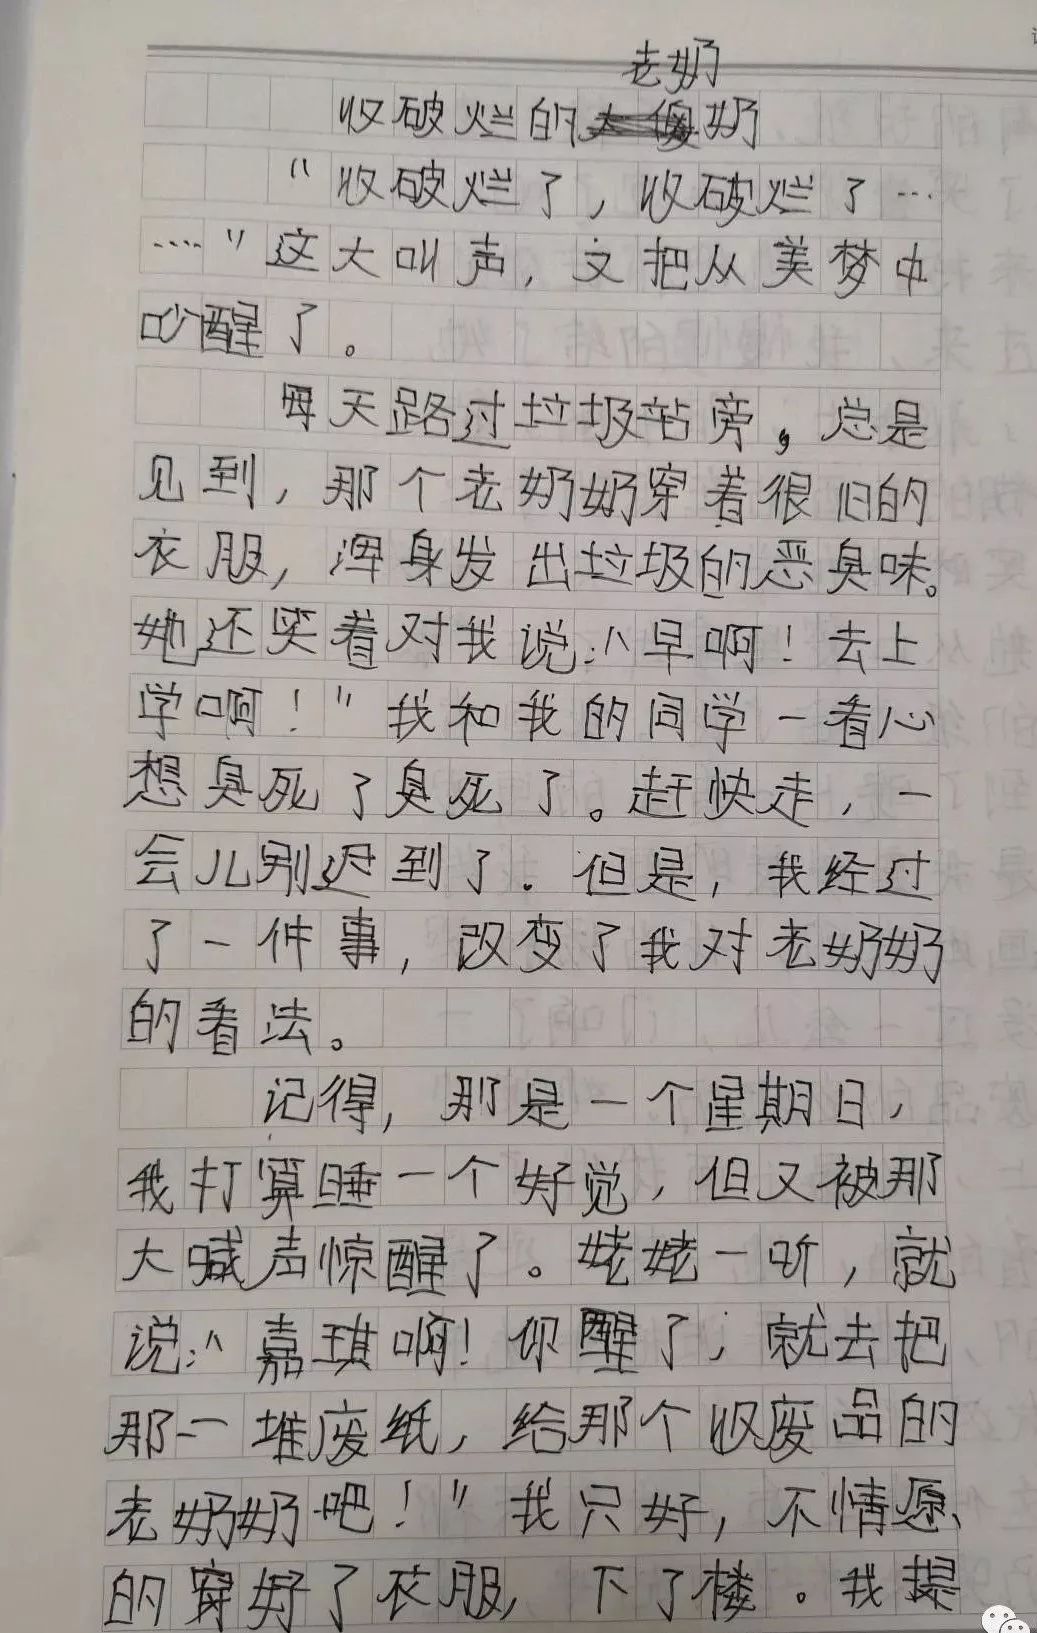 收破烂的老奶奶
“收破烂了，收破烂了…
…”这大叫声，文把从美梦中
吵醒了。
每天路过垃圾站旁，总是
见到，那个老奶奶穿着很旧的
衣服，浑身发出垃圾的恶臭味。
她还笑着对我说：“早啊！去上
学啊！”我和我的同学一看心
想臭死了臭死了。赶快走，一
会儿别迟到了。但是，我经过
了一件事，改变了我对老奶奶
的看法。
记得，那是一个星期日，
我打算睡一个好觉，但又被那
大喊声惊醒了。姥姥一听，就
说：“嘉琪啊！你醒了，就去把
那一堆废纸，给那个收废品的
老奶奶吧！”我只好，不情愿
的穿好了衣服，下了楼。我提